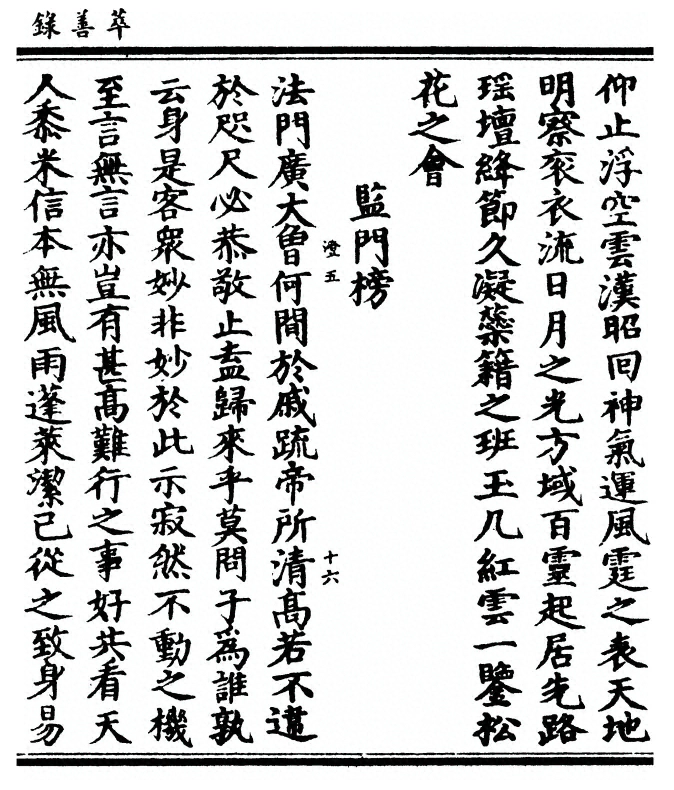 萃善錄
仰止浮空雲漢昭回神氣運風霆之表天地
明察衮衣流日月之光方域百靈起居先路
瑶壇絳節久凝蘂籍之班玉几紅雲一鑒松
花之會
監門榜
澄五
十六
法門廣大曽何間於戚䟽帝所清高若不違
於咫尺必恭敬止盍歸來乎莫問子爲誰孰
云身是客衆妙非妙於此示寂然不動之機
至言無言亦豈有甚高難行之事好共看天
人黍米信本無風雨蓬萊潔已從之致身易